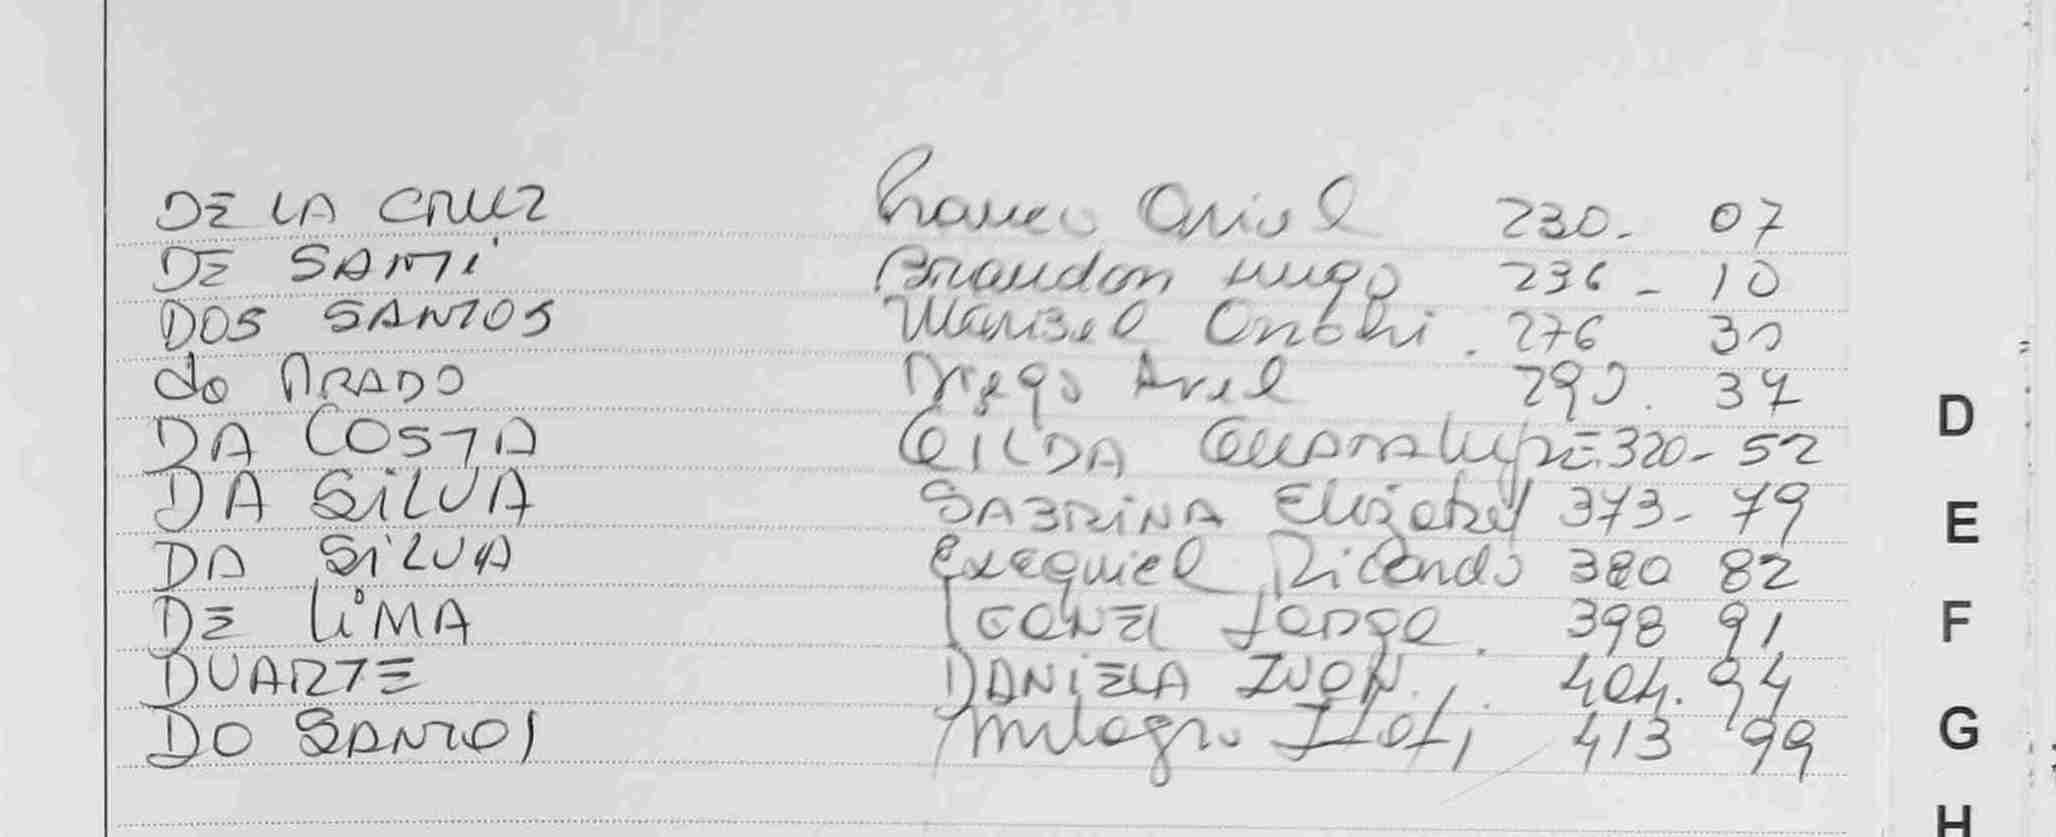 DE LA CRUZ Franco Oriel 230. 07
DE SANTI Brandon Hugo 236 - 10
DOS SANTOS Marisel Onohi. 276 30
do PRADO Diego Axel 290. 37
DA COSTA GILDA GUADALUPE 320 - 52
DA SILVA SABRINA Elizabet 373 - 79
DA SILVA Exequiel Ricardo 380 82
DE LIMA LEONEL Jorge. 398 91
DUARTE DANIELA IVON. 404. 94
DO SANTOS Milagro 413 99
D
E
F
G
H